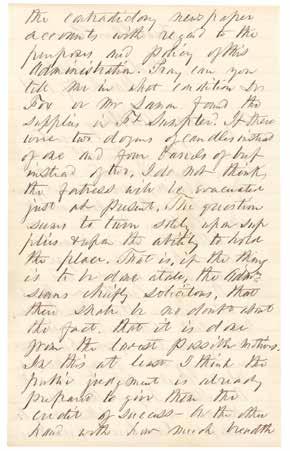 the contradictory newspaper
accounts with regard to the
purposes and policy of this
Administration. Pray, can you
tell me in what condition Dr
Fox or Mr Lamon found the
supplies in Ft Sumpter. If there
were two dozens of candles instead
of one and four barrels of beef
instead of two, I do not think
the fortress will be evacuated
just at present. The question
seems to turn solely upon sup
plies & upon the ability to hold
the place. That is, if the thing
is to be done at all, the Adm
seems chiefly solicitous, that
there shall be no doubt about
the fact that it is done
from the lowest possible motives.
In this at least I think the
public judgment is already
prepared to give them the
credit of success - On the other
hand with how much breadth